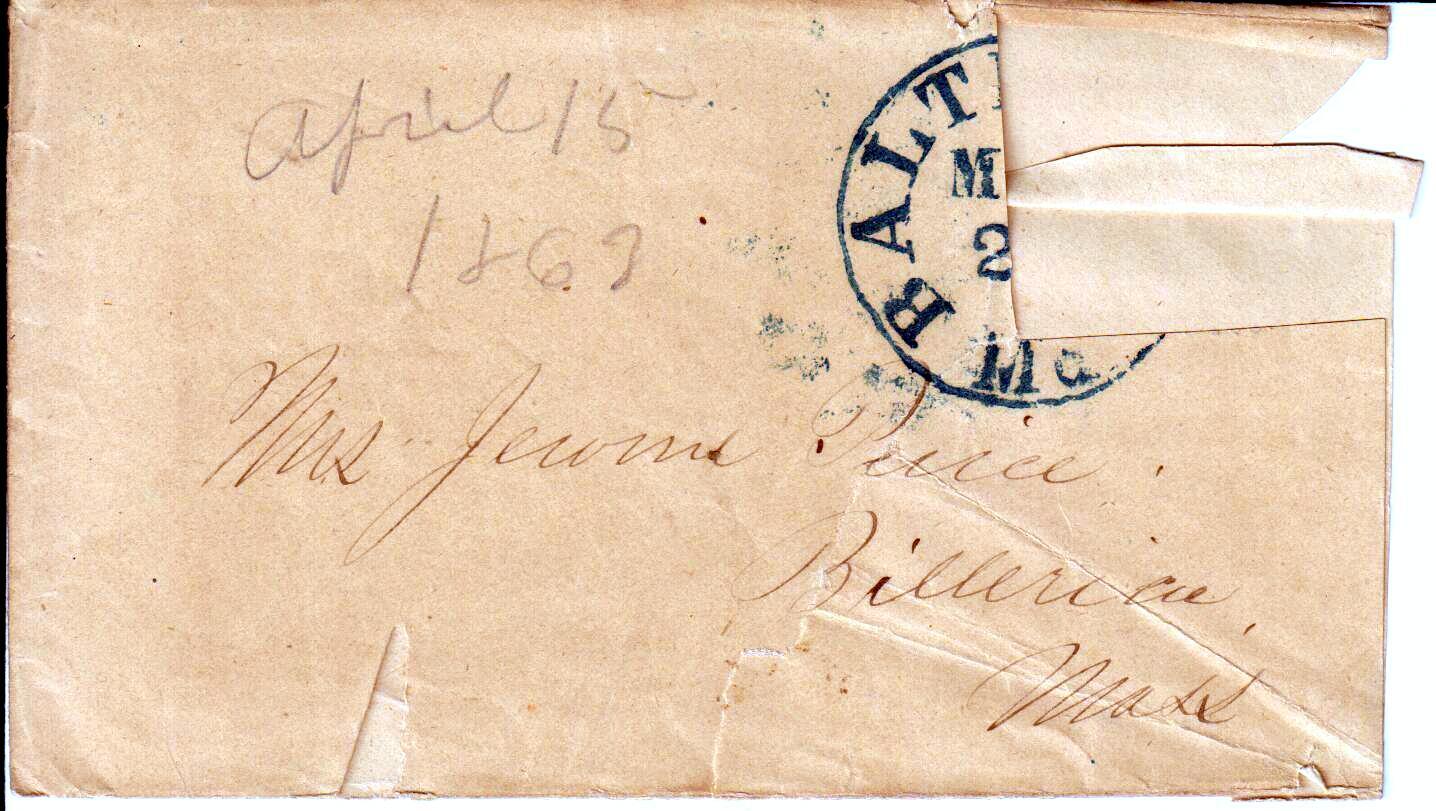 April 15
1863
BALT
M
2
Md
Mrs Jerome Peirce
Billerica
Mass